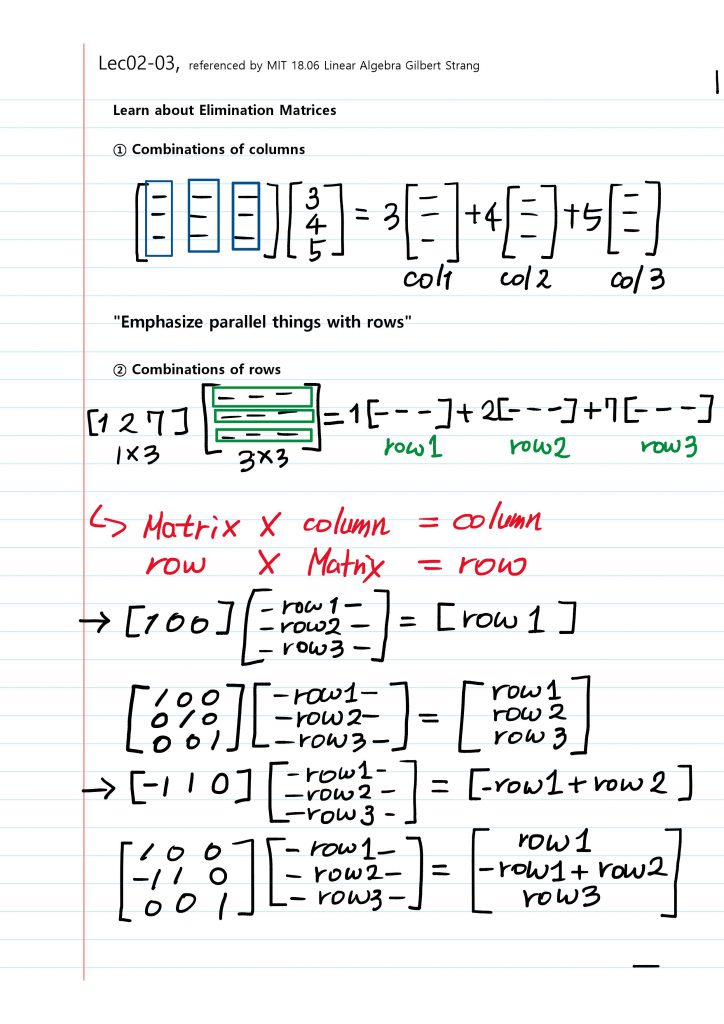 Lec02-03, referenced by MIT 18.06 Linear Algebra Gilbert Strang
Learn about Elimination Matrices
① Combinations of columns
[- - -] [3] = 3 [-] + 4 [-] + 5 [-]
[- - -] [4] [-] [-] [-]
[- - -] [5] [-] [-] [-]
col1 col2 col3
"Emphasize parallel things with rows"
② Combinations of rows
[1 2 7] [- - -] = 1[- - -] + 2[- - -] + 7[- - -]
[- - -]
[- - -]
row1 row2 row3
1×3 3×3
↳ Matrix × column = column
row × Matrix = row
→ [1 0 0] [- row1 -] = [row1]
[- row2 -]
[- row3 -]
[1 0 0] [- row1 -] = [row1]
[0 1 0] [- row2 -] [row2]
[0 0 1] [- row3 -] [row3]
→ [-1 1 0] [- row1 -] = [-row1 + row2]
[- row2 -]
[- row3 -]
[1 0 0] [- row1 -] = [row1]
[-1 1 0] [- row2 -] [-row1 + row2]
[0 0 1] [- row3 -] [row3]